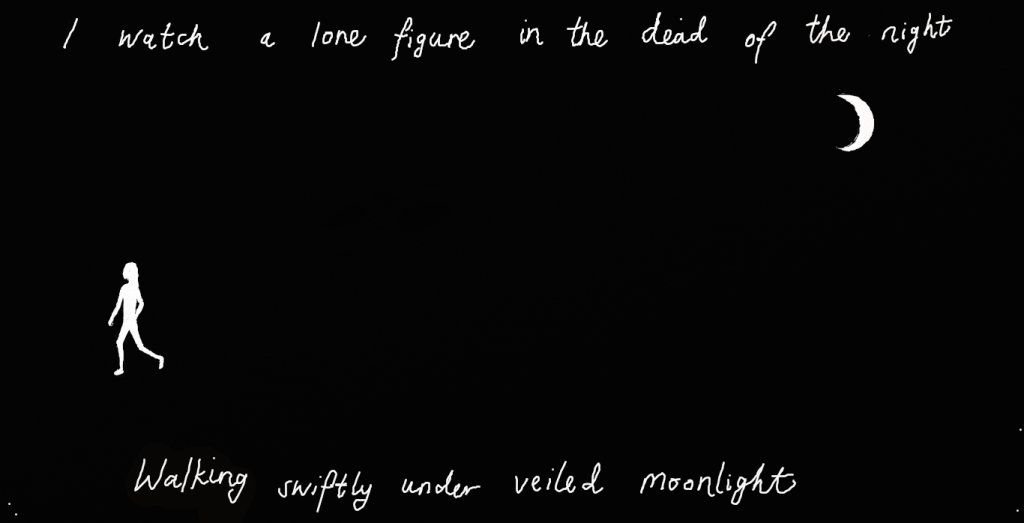 I watch a lone figure in the dead of the night
Walking swiftly under veiled moonlight